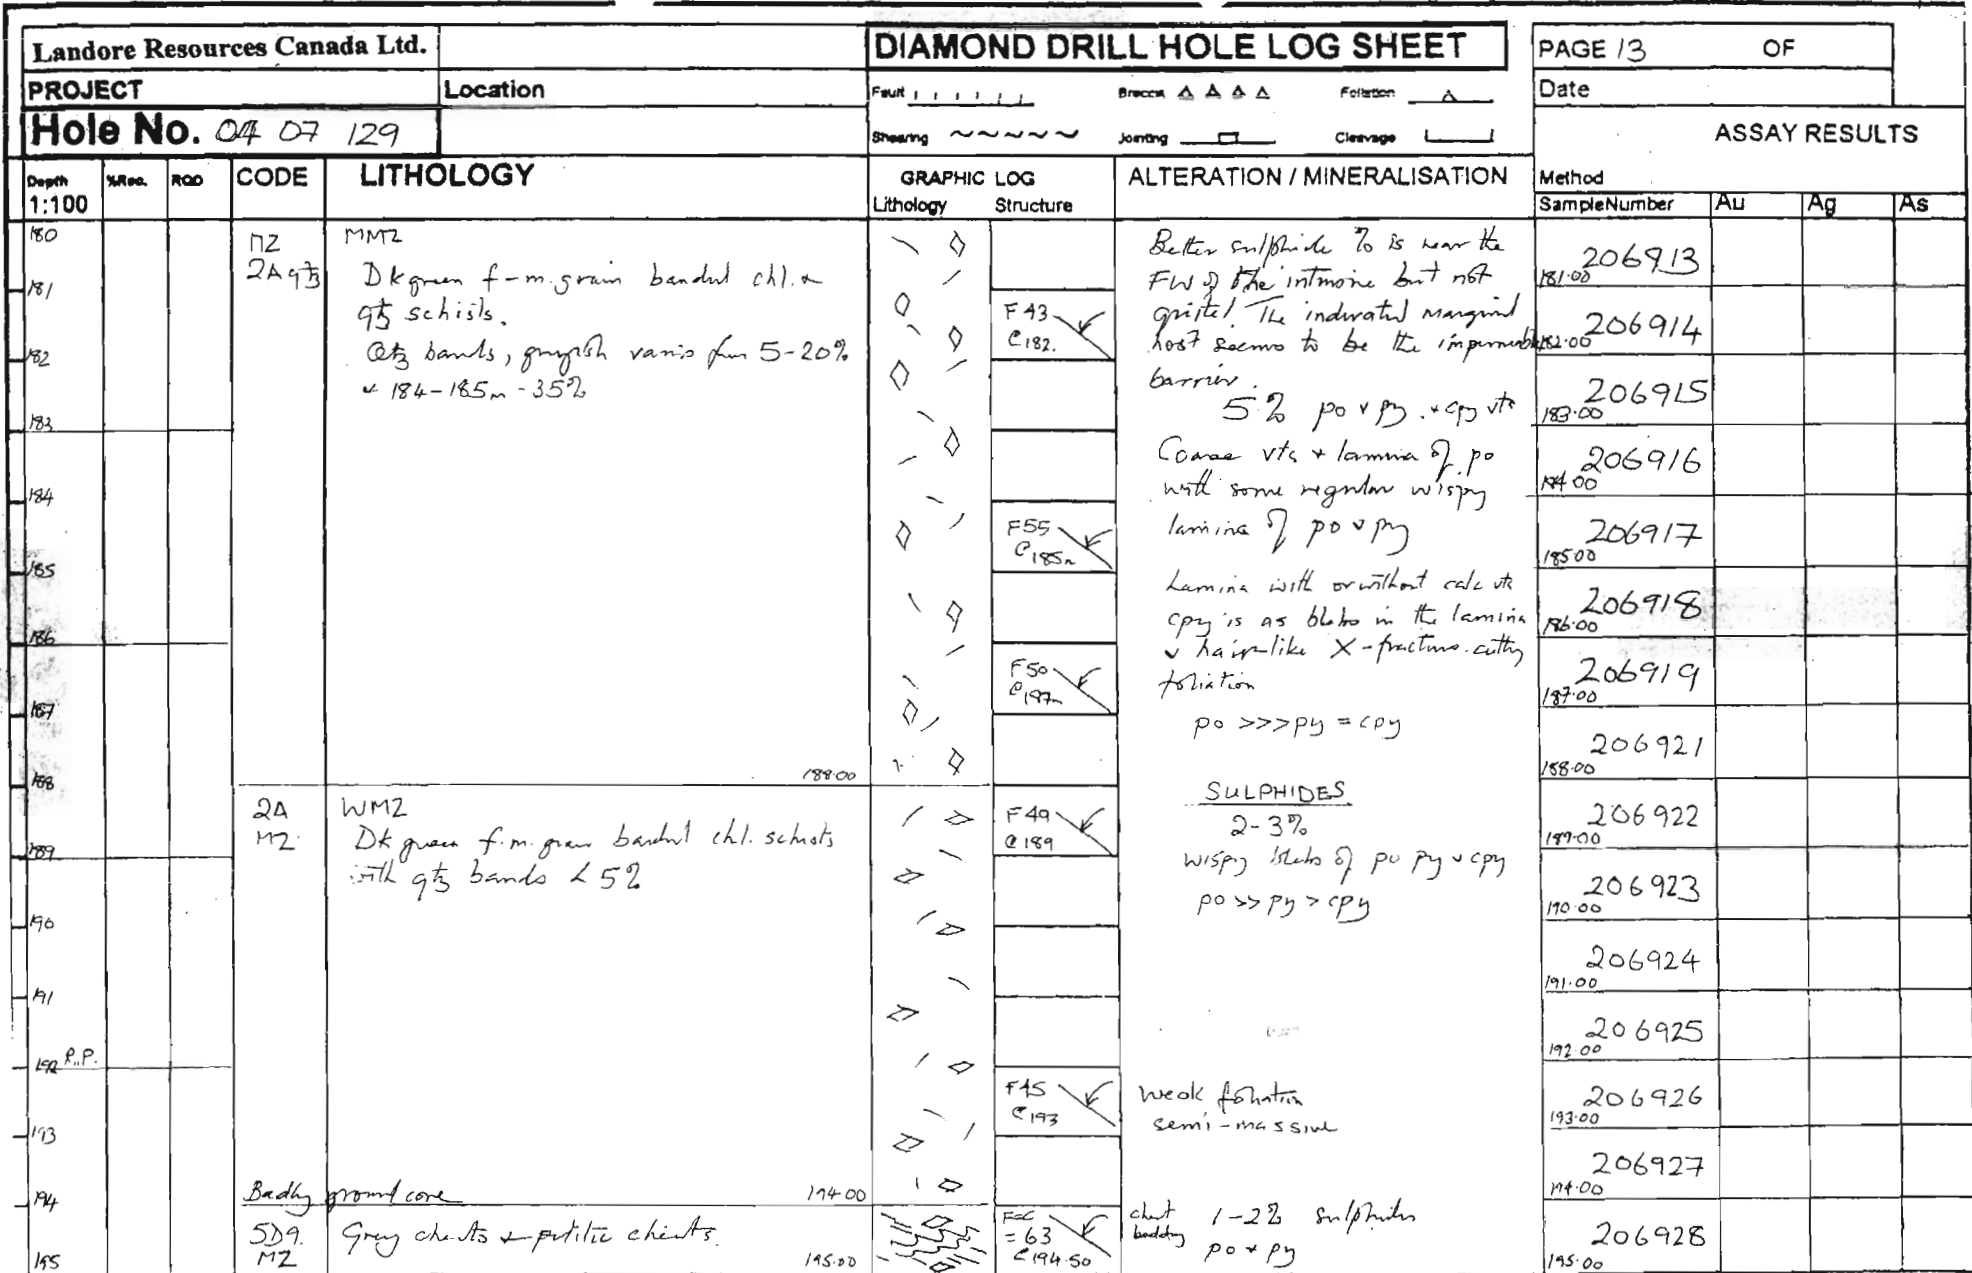 Landore Resources Canada Ltd.
DIAMOND DRILL HOLE LOG SHEET
PAGE 13 OF
PROJECT
Location
Fault
Breccia
Foliation
Date
Hole No. 04 07 129
Shearing
Jointing
Cleavage
ASSAY RESULTS
Depth
1:100
%Rec.
RQD
CODE
LITHOLOGY
GRAPHIC LOG
Lithology Structure
ALTERATION / MINERALISATION
Method
SampleNumber Au Ag As
180
181
182
183
184
185
186
187
188
189
190
191
192 R.P.
193
194
195
MZ
2A qtz
MMZ
Dk green f-m.grain banded chl. &
qtz schists.
Qtz bands, greyish varies from 5-20%
& 184-185m - 35%
188.00
2A
MZ
WMZ
Dk green f.m. grain banded chl. schists
with qtz bands < 5%
Badly ground core
194.00
5D9.
MZ
Grey cherts & pelitic cherts.
195.00
F 43
@ 182.
F55
@ 185m
F 50
@ 187m
F 49
@ 189
F45
@ 193
= 63
@ 194.50
Better sulphide % is near the
FW of the intrusive but not
quite! The indurated marginal
host seems to be the impermeable
barrier.
5% po & py. & cpy vts
Coarse vts & lamina of po
with some regular wispy
lamina of po & py
Lamina with or without calc vts
cpy is as blebs in the lamina
& hair-like X-fractures cutting
foliation
po >>> py = cpy
SULPHIDES
2-3%
wispy blebs of po py & cpy
po >> py > cpy
weak foliation
semi-massive
chert
bedding
1-2% sulphides
po & py
206913
181.00
206914
182.00
206915
183.00
206916
184.00
206917
185.00
206918
186.00
206919
187.00
206921
188.00
206922
189.00
206923
190.00
206924
191.00
206925
192.00
206926
193.00
206927
194.00
206928
195.00